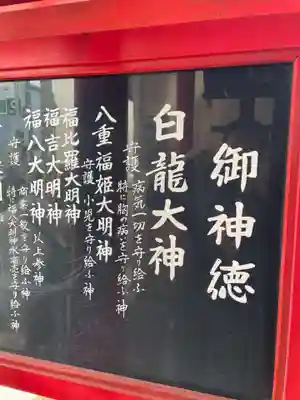 御神徳
白龍大神
守護 病気一切を守り給ふ
特に胸の病いを守り給ふ神
八重福姫大明神
守護 小児を守り給ふ神
福比羅大明神
福吉大明神
福八大明神 以上参神
守護 商業一般を守り給ふ神
特に福八大明神水商売を守り給ふ神